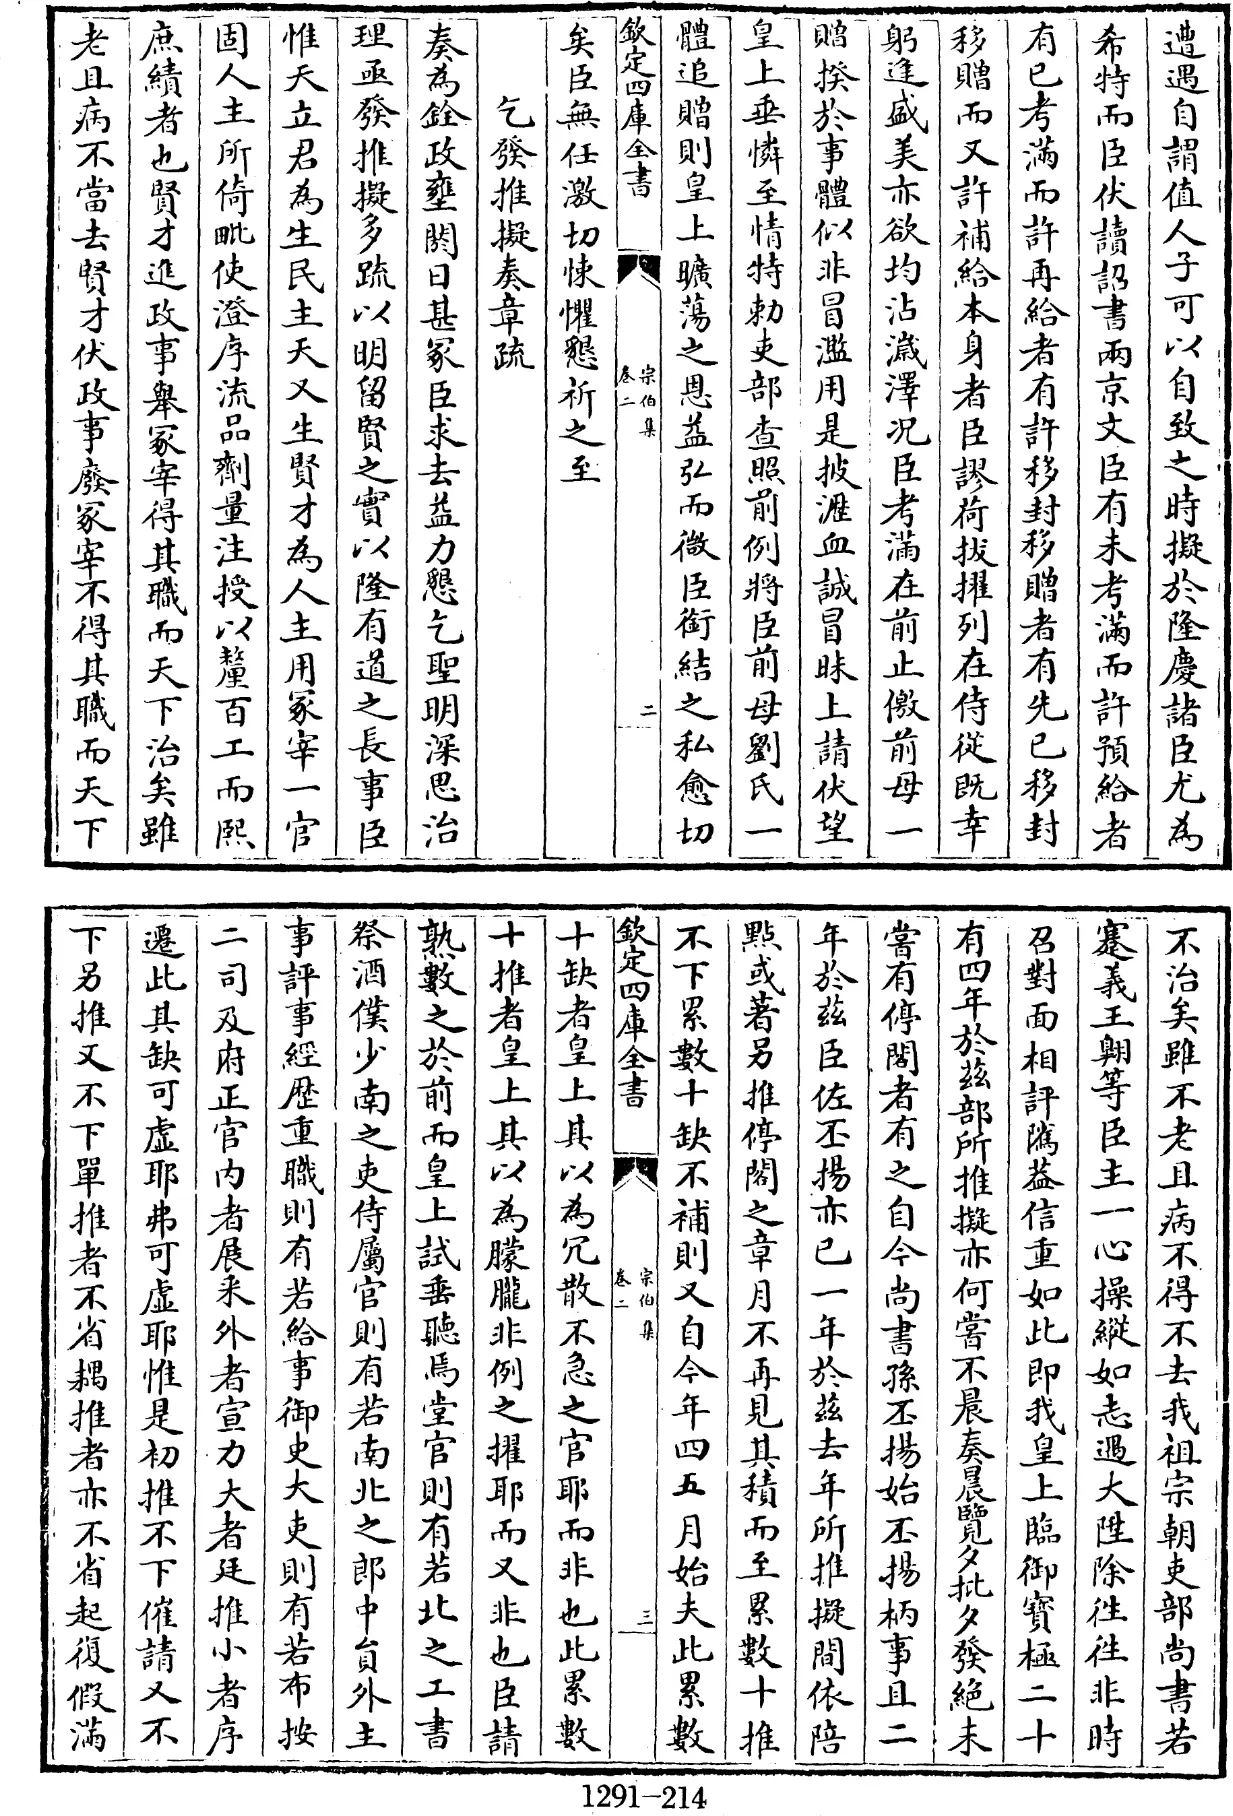 遭遇自謂值人子可以自致之時擬於隆慶諸臣尤為
希特而臣伏讀詔書兩京文臣有未考滿而許預給者
有已考滿而許再給者有許移封移贈者有先已移封
移贈而又許補給本身者臣謬荷拔擢列在侍從既幸
躬逢盛美亦欲均沾濊澤况臣考滿在前止儌前母一
贈揆於事體似非冒濫用是披瀝血誠冒昧上請伏望
皇上垂憐至情特勅吏部查照前例將臣前母劉氏一
體追贈則皇上曠蕩之恩益弘而微臣銜結之私愈切
欽定四庫全書
宗伯集
卷二
二
矣臣無任激切悚懼懇祈之至
乞發推擬奏章疏
奏為銓政壅閼日甚冢臣求去益力懇乞聖明深思治
理亟發推擬多疏以明留賢之實以隆有道之長事臣
惟天立君為生民主天又生賢才為人主用冢宰一官
固人主所倚毗使澄序流品劑量注授以釐百工而熙
庶績者也賢才進政事舉冢宰得其職而天下治矣雖
老且病不當去賢才伏政事廢冢宰不得其職而天下
不治矣雖不老且病不得不去我祖宗朝吏部尚書若
蹇義王翺等臣主一心操縱如志遇大陞除徃徃非時
召對面相評隲益信重如此即我皇上臨御寶極二十
有四年於茲部所推擬亦何嘗不晨奏晨覽夕批夕發絕未
嘗有停閣者有之自今尚書孫丕揚始丕揚柄事且二
年於茲臣佐丕揚亦已一年於茲去年所推擬間依陪
點或著另推停閣之章月不再見其積而至累數十推
不下累數十缺不補則又自今年四五月始夫此累數
欽定四庫全書
宗伯集
卷二
三
十缺者皇上其以為冗散不急之官耶而非也此累數
十推者皇上其以為朦朧非例之擢耶而又非也臣請
熟數之於前而皇上試垂聽焉堂官則有若北之工書
祭酒僕少南之吏侍屬官則有若南北之郎中員外主
事評事經歷重職則有若給事御史大吏則有若布按
二司及府正官內者展采外者宣力大者廷推小者序
遷此其缺可虛耶弗可虛耶惟是初推不下催請又不
下另推又不下單推者不省耦推者亦不省起復假滿
1291-214